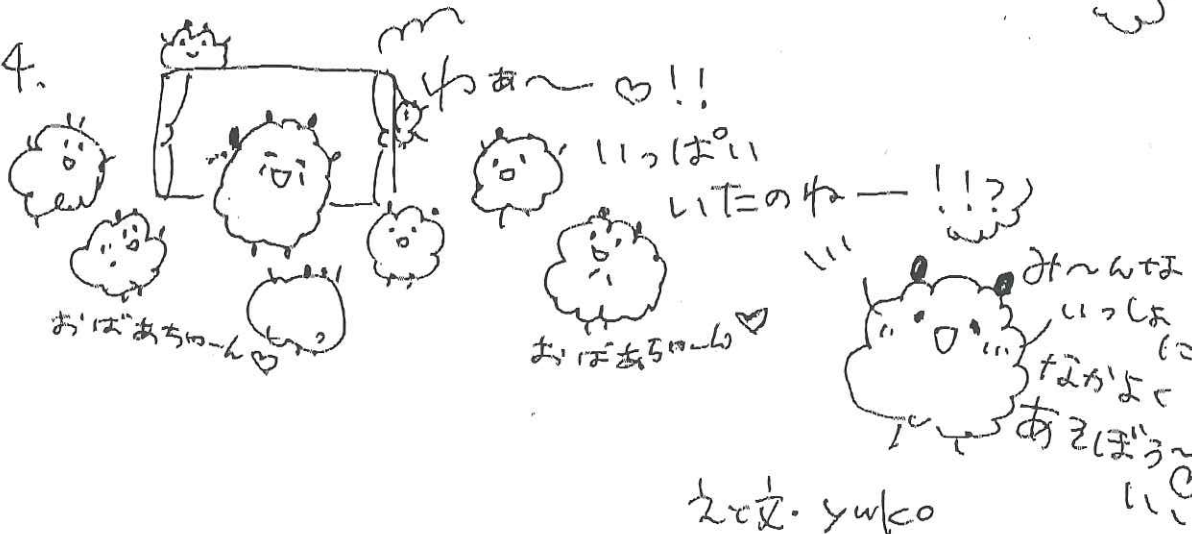 4.
わぁ〜♡!!
いっぱい
いたのねー!!?
おばあちゃーん♡
おばあちゃーん♡
み〜んな
いっしょ
に
なかよく
あそぼう〜
♡
えと文・yuko